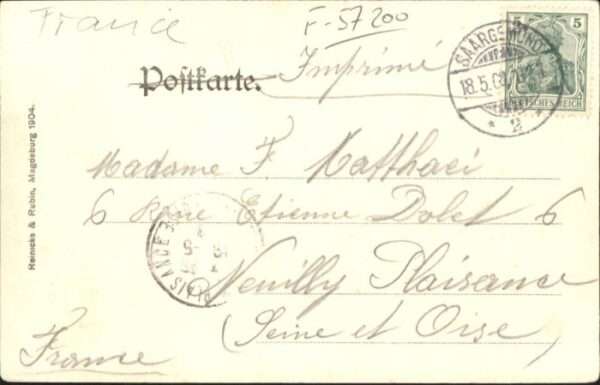 France
F-57200
Imprimé
Postkarte.
5 5
SAARGEMÜND
18.5.0
DEUTSCHES REICH
* 2
Madame F. Matthaei
6 Rue Etienne Dolet 6
Neuilly Plaisance
(Seine et Oise)
France
PLAISANCE
Reinicke & Rubin, Magdeburg 1904.